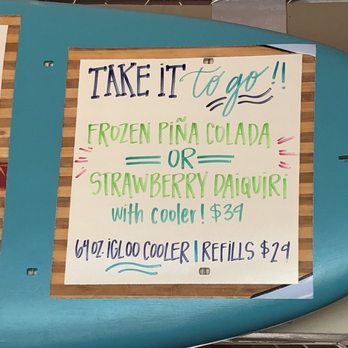 TAKE IT to go!!
FROZEN PIÑA COLADA
OR
STRAWBERRY DAIQUIRI
with cooler! $39
64oz IGLOO COOLER | REFILLS $29